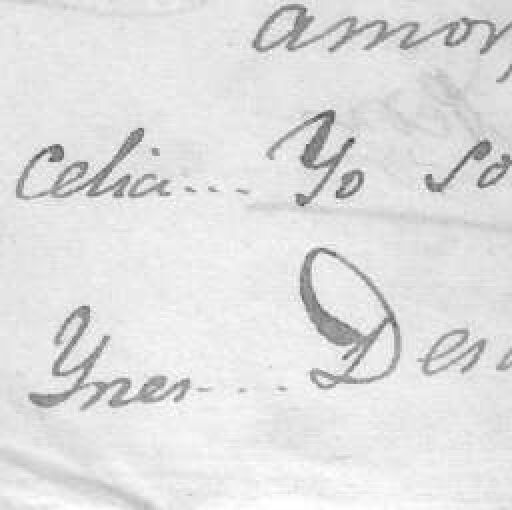 amor,
Celia... Yo so
Ynes.... Des